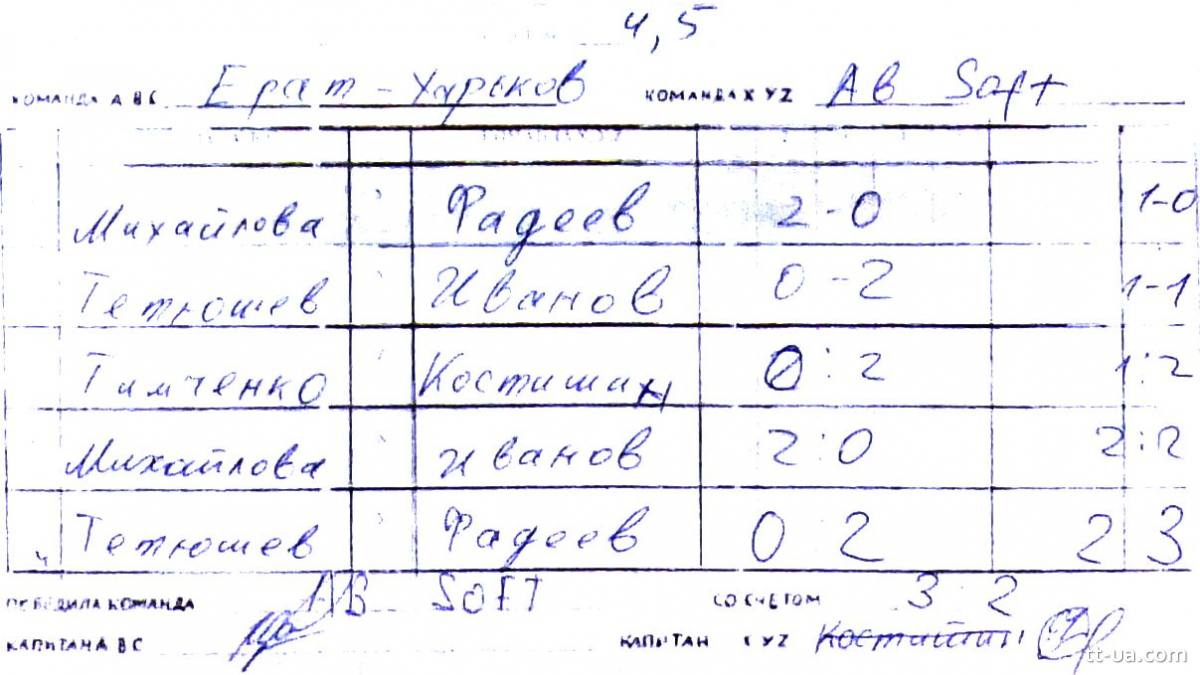 4,5
КОМАНДА АВС Ерат - Харьков КОМАНДА XYZ AB Soft
Михайлова Фадеев 2-0 1-0
Тетюшев Иванов 0-2 1-1
Тимченко Костишин 0:2 1:2
Михайлова Иванов 2:0 2:2
Тетюшев Фадеев 0 2 2 3
ПОБЕДИЛА КОМАНДА AB SOFT СО СЧЕТОМ 3:2
КАПИТАН АВС КАПИТАН XYZ Костишин
tt-ua.com